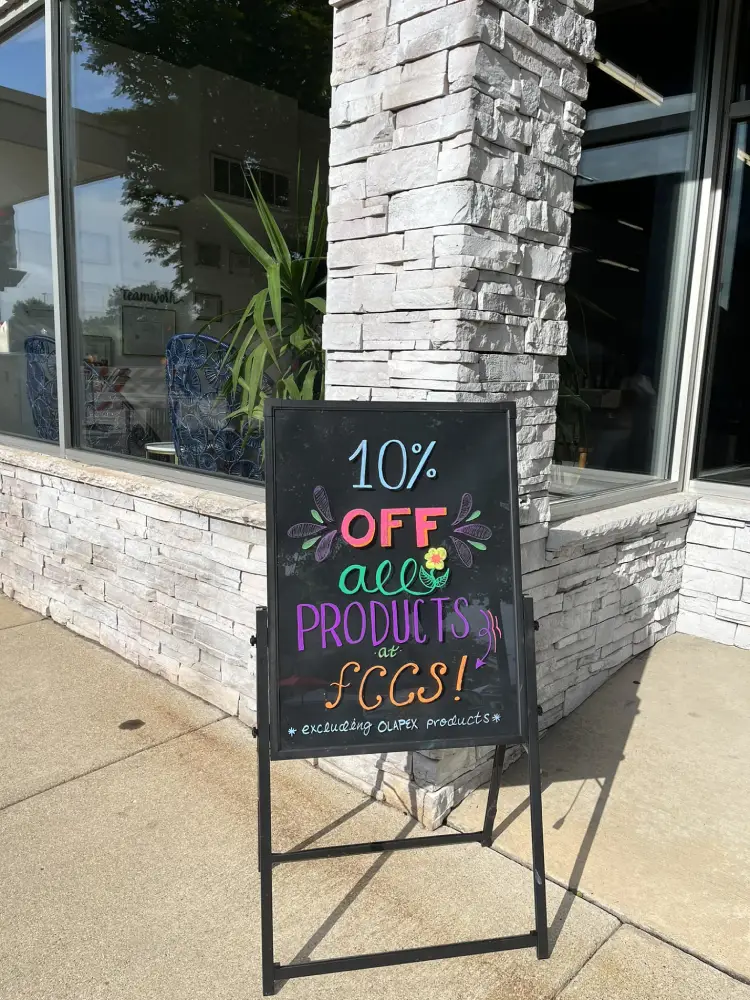 Teamwork
10%
OFF
all
PRODUCTS
at
fCCS!
*excluding OLAPEX products*